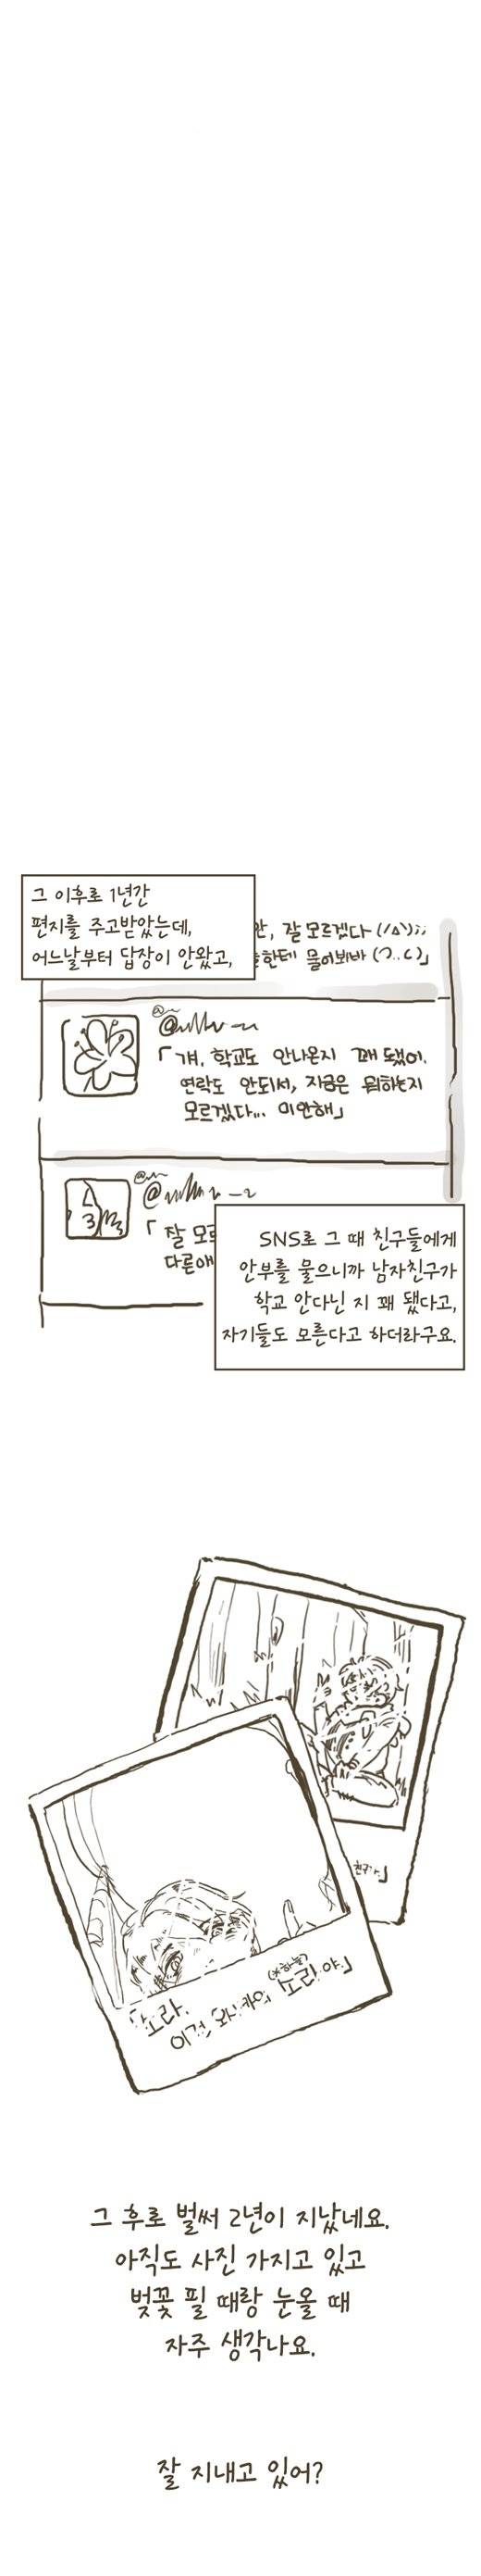 그 이후로 1년간
편지를 주고받았는데,
어느날부터 답장이 안왔고,
잘 모르겠다 (/Δ\);;
한테 물어봐바
「걔, 학교도 안나온지 꽤 됐어.
연락도 안되서, 지금은 뭐하는지
모르겠다... 미안해」
「잘 모르
다른애
SNS로 그 때 친구들에게
안부를 물으니까 남자친구가
학교 안다닌 지 꽤 됐다고,
자기들도 모른다고 하더라구요.
소라,
이건
(*하늘)
소라!야」
그 후로 벌써 2년이 지났네요.
아직도 사진 가지고 있고
벚꽃 필 때랑 눈올 때
자주 생각나요.
잘 지내고 있어?